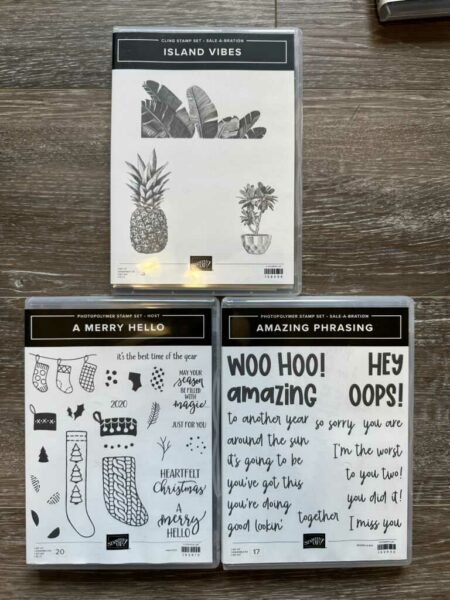 CLING STAMP SET • SALE-A-BRATION
ISLAND VIBES
PHOTOPOLYMER STAMP SET • HOST
A MERRY HELLO
it's the best time of the year
MAY YOUR
season
BE FILLED
WITH
magic!
2020
JUST FOR YOU
HEARTFELT
Christmas
A
merry
HELLO
STAMPIN' UP!
20
PHOTOPOLYMER STAMP SET • SALE-A-BRATION
AMAZING PHRASING
WOO HOO!
HEY
amazing
OOPS!
to another year
so sorry
you are
around the sun
I'm the worst
it's going to be
to you two!
you've got this
you did it!
you're doing
together
I miss you
good lookin'
STAMPIN' UP!
17